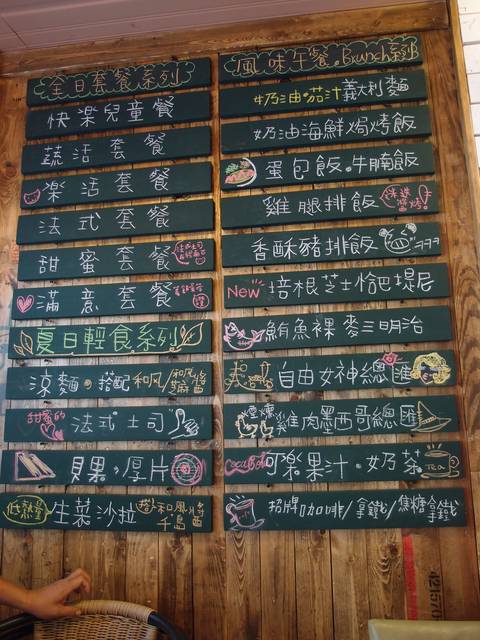 全日套餐系列
快樂兒童餐
蔬活套餐
樂活套餐
法式套餐
甜蜜套餐
滿意套餐
夏日輕食系列
涼麵。搭配和風/和風麻醬
甜蜜的法式土司
貝果,厚片
低熱量生菜沙拉 搭和風/千島醬
風味午餐。Brunch系列
奶油。茄汁義利麵
奶油海鮮焗烤飯
蛋包飯。牛腩飯
雞腿排飯
香酥豬排飯
New 培根芝士恰巴堤尼
鮪魚裸麥三明治
自由女神總匯
燻雞肉墨西哥總匯
CocaCola 可樂果汁。奶茶 TEA
招牌咖啡/拿鐵/焦糖拿鐵